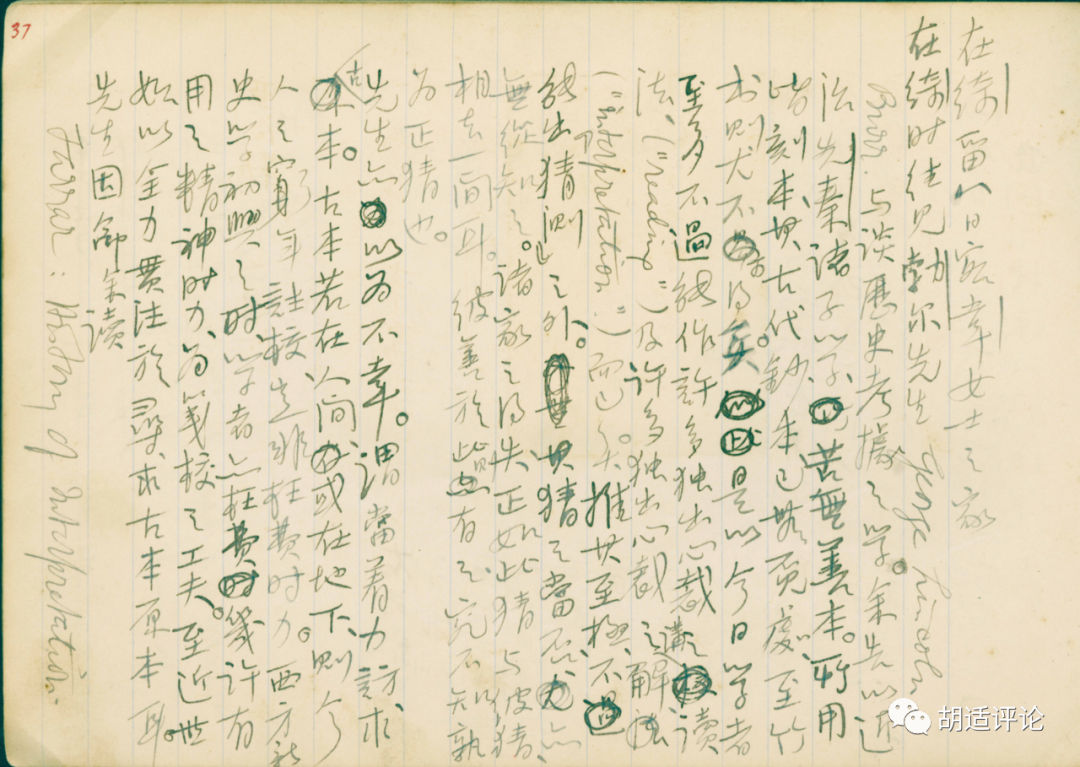 37
在绮留八日客韦女士之家
在绮时往见勃尔先生 George Lincoln
Burr 与谈历史考據之学。余告以近
治先秦诸子学,苦無善本。所用
皆刻本,其古代鈔本已無覓處,至竹
书則尤不易得矣。是以今日学者
至多不過能作許多独出心裁之讀
法("reading")及許多独出心裁之解說
("interpretation")而已。推其至極,不過
能出「猜測」之外。其猜之當否,亦
無從知之。諸家之得失正如此猜与彼猜,
相去一間耳。彼善於此則有之,究不知孰
为正猜也。
先生亦以为不幸。謂當着力訪求
古本。古本若在人间,或在地下,則今
人之窮年註校,豈非枉費时力。西方新
史学初興之时,学者亦枉費幾許有
用之精神时力,为箋校之工夫。至近世
始以全力貫注於尋求古本原本耳。
先生因命余讀
Farrar: History of Interpretation.
胡适评论